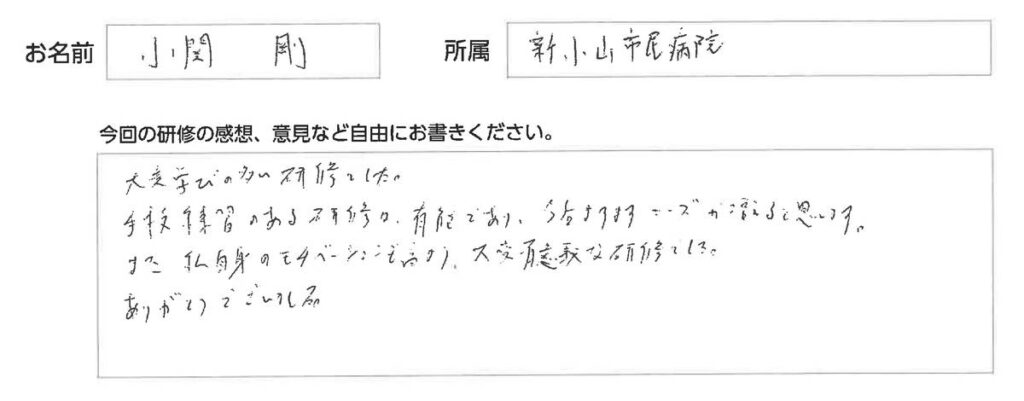 お名前 小関 剛 所属 新小山市民病院
今回の研修の感想、意見など自由にお書きください。
大変学びの多い研修でした。
手技練習のある研修は、有能であり、今後ますますニーズが増えると思います。
また 私自身のモチベーションも高まり、大変有意義な研修でした。
ありがとうございました